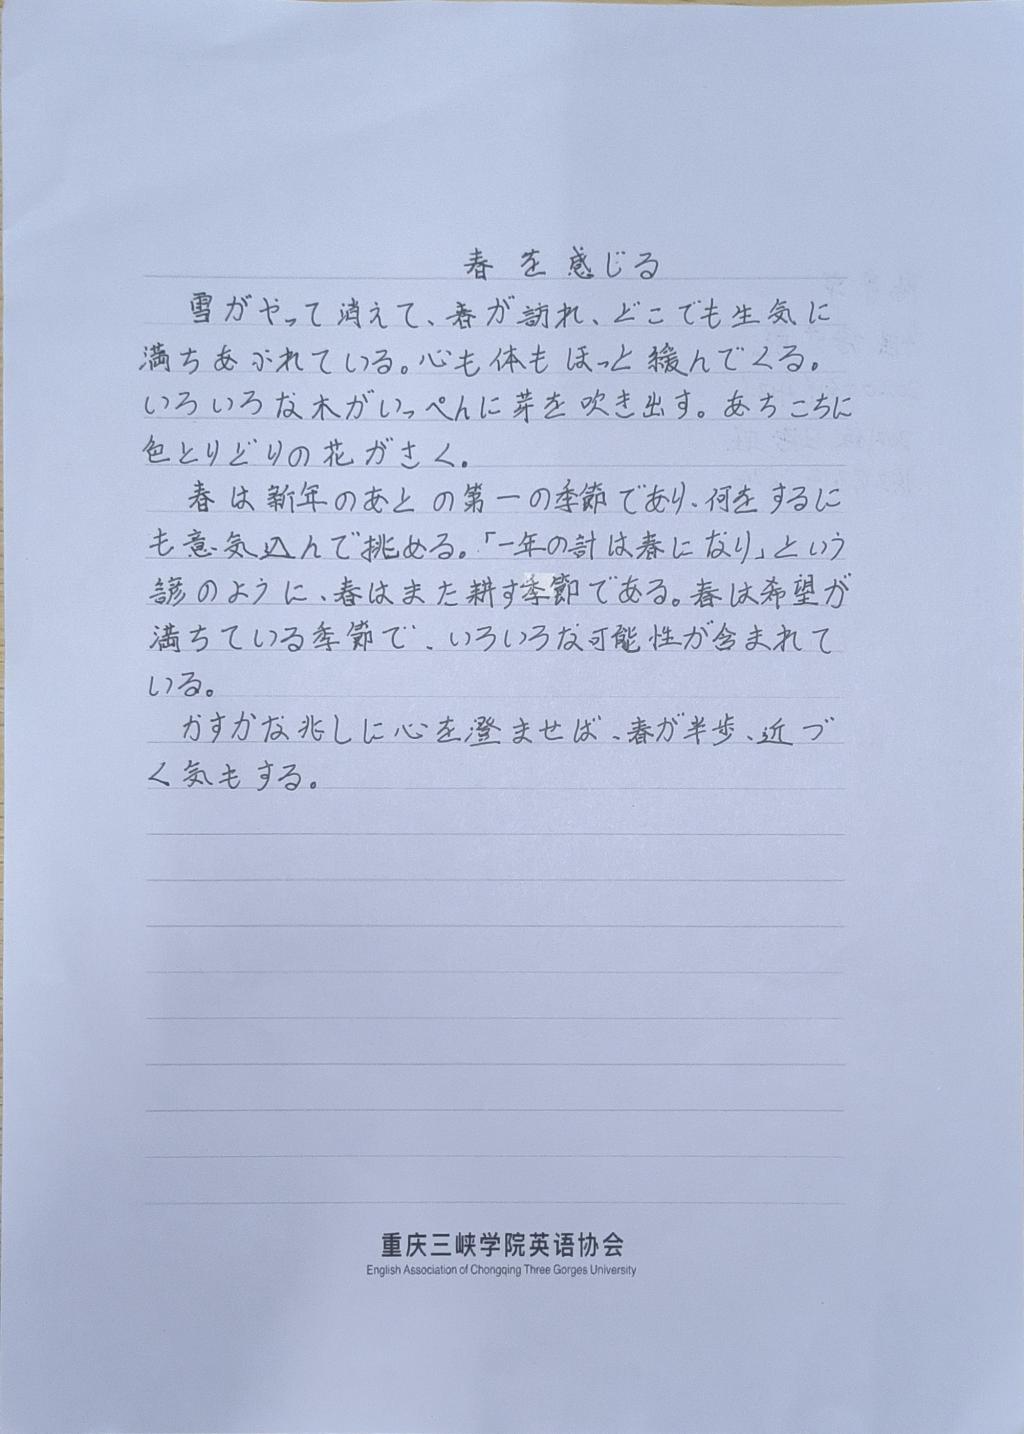 春を感じる
雪がやって消えて、春が訪れ、どこでも生気に
満ちあふれている。心も体もほっと緩んでくる。
いろいろな木がいっぺんに芽を吹き出す。あちこちに
色とりどりの花がさく。
春は新年のあとの第一の季節であり、何をするに
も意気込んで挑める。「一年の計は春になり」という
諺のように、春はまた耕す季節である。春は希望が
満ちている季節で、いろいろな可能性が含まれて
いる。
かすかな兆しに心を澄ませば、春が半歩、近づ
く気もする。
重庆三峡学院英语协会
English Association of Chongqing Three Gorges University